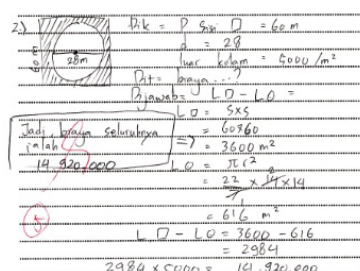 2.)
60 m
28m
Dik = P sisi □ = 60 m
d = 28
luar kolam = 5000 /m²
Dit = biaya ...?
Dijawab = L□ - L○ =
L□ = s×s
= 60×60
= 3600 m²
L○ = πr²
= 22 × 14 × 14
7
2
= 616 m²
L□ - L○ = 3600 - 616
= 2984
2984 × 5000 = 14.920.000
Jadi, biaya seluruhnya =>
ialah
14.920.000